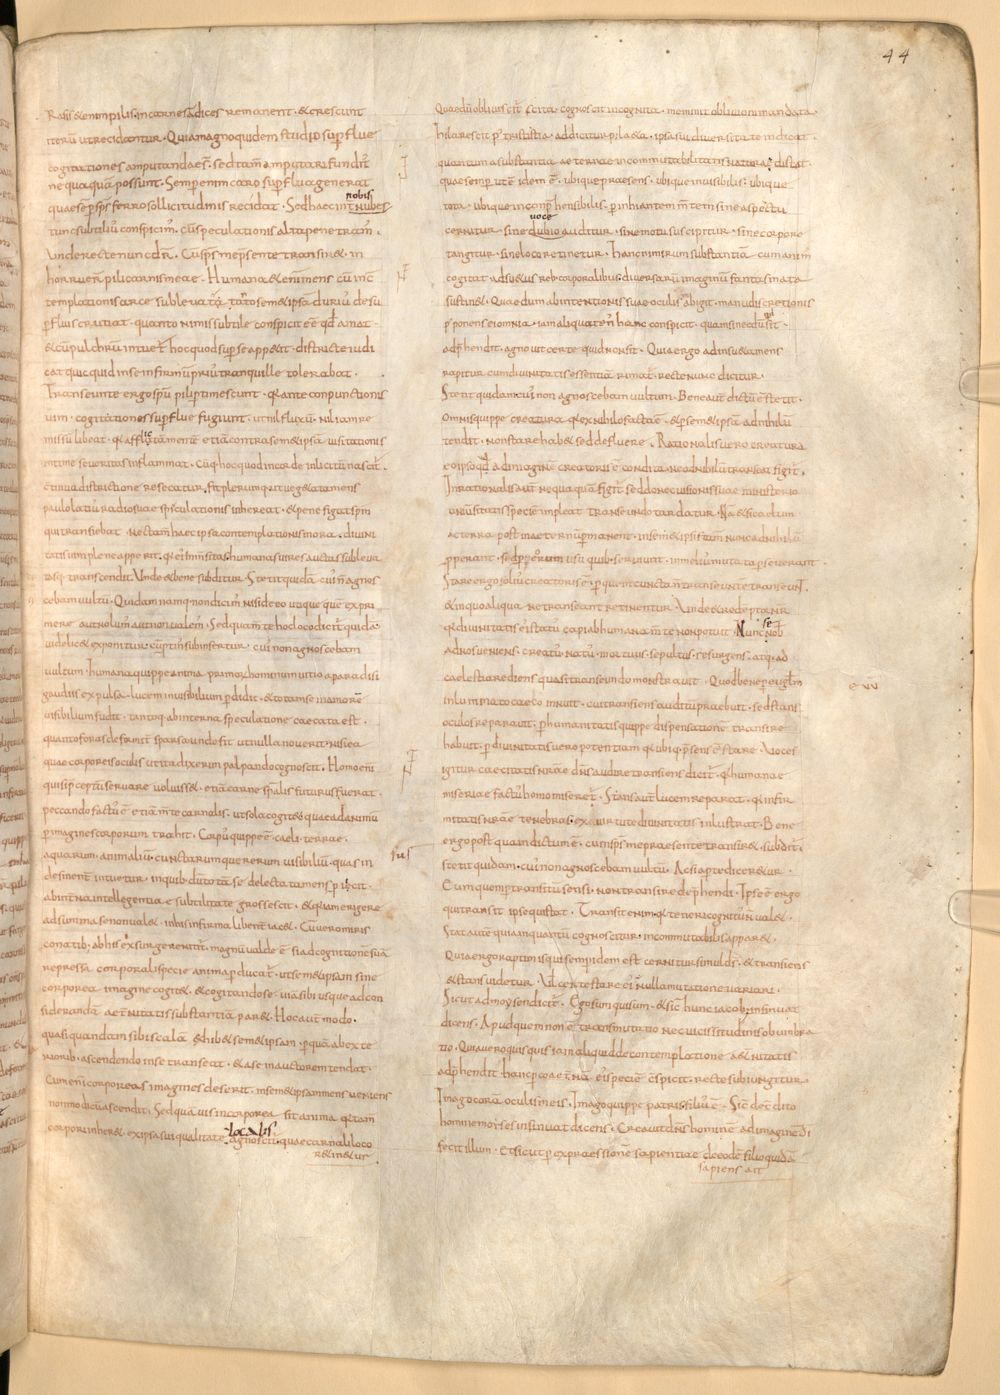 44
Rasis & enim pilis in carne radices remanent · & crescunt
iterū ut recidantur · Quia magno quidem studio supflue
cogitationes amputandae s̄ · sed tam̄ amputari funditꝰ
ne quaquā possunt · Semper enim caro supflua generat
nobis
quae semp sp̄s ferro sollicitudinis recidat · Sed haec int nubes
tunc subtiliꝰ conspicimꝰ · cū speculationis alta penetramꝰ ·
Unde recte nunc dr̄ · Cū sp̄s me psente transir& · in
horruer̄ pili carnis meae · Humana & enī mens cū in c̄
templationis arce sublevat̄ · tāto sem&ipsā duriꝰ de su
pfluis cruciat · quanto nimis subtile conspicit eē qđ amat ·
& cū pulchrū intuet̄ hoc quod sup se app&it · districte iudi
cat quicquid in se infirmū priꝰ tranquille tolerabat ·
Transeunte ergo sp̄u pili ptimescunt · q̄ ante conpunctionis
vim · cogitationes supflue fugiunt · ut nil fluxū · nil iam re
missū libeat · q̄ afflictā mentē etiā contra sem&ipsā visitationis
intime severitas inflammat · Cūq; hoc quod in corde inlicitū nascit̄ ·
c̄tinua districtione resecatur · fit plerumq; ut veg&ata mens
paulo latiꝰ radio suae speculationis inhereat · & pene figat spm̄
qui transiebat · nec tam̄ haec ipsa contemplationis mora · divini
tatis vim plene apperit · q̄ ei inmsitas humanas vires auctas subleva
tasq; transcendit · Unde & bene subditur · Stetit quidā cuiꝰ n̄ agnos
cebam vultū · Quidam namq; non dicimꝰ nisi de eo utique quē expri
mere aut nolumꝰ aut non valemꝰ · Sed quam m̄te hoc loco dicit̄ quidā
videlic& exponitur · cū ptinꝰ subinfertur · cuiꝰ non agnoscebam
vultum · humana quippe anima primor̄ hominum vitio a paradisi
gaudiis expulsa · lucem invisibilium pdidit · & tota in se in amorē
visibilium fudit · tantoq; ab interna speculatione caecata est ·
quanto foras deformit̄ sparsa · unde fit ut nulla noverit nisi ea
quae corporeis oculis ut ita dixerim palpando cognoscit · Homo enī
qui si pceptū servare voluiss& · etiā carne spalis futurus fuerat ·
peccando factꝰ ē etiā m̄te carnalis · ut sola cogit& quae ad animū
p imagines corporum trahit · Corpꝰ quippe ē · caeli · terrae ·
aquarum · animaliū · cunctarumque rerum visibiliū · quas in
desinent̄ intuetur · in quib; dū tota se delectata mens picit ·
ab int̄na intellegentiae subtilitate grossescit · & quia erigere
ad summa se non val& · in his infirma libent̄ iac& · Cū vero miris
conatib; ab his exsurgere nititur · magnū valde ē si ad cognitionē suā
repressa corporali specie anima pducat̄ · ut sem&ipsam sine
corporea imagine cogit& · & cogitando se viā sibi usque ad con
siderandā aet̄nitatis substantiā par& · Hoc aut̄ modo ·
quasi quandam sibi scalā exhib& sem&ipsam · p quā ab exte
riorib; ascendendo in se transeat · & a se in auctorem tendat ·
Cum enī corporeas imagines deserit · in sem&ipsam mens veniens
non modicū ascendit · Sed quāvis incorporea sit anima · q̄ tam̄
localis
corpori inher& · ex ipsa sui qualitate agnoscit̄ · quae carnali loco
r&in&ur
Quae dū obliviscit̄ scita · cognoscit incognita · meminit oblivioni mandata ·
hilarescit p tristitia · addicitur p laeta · ipsa sui diversitate indicat ·
quantum a substantia aeternae incommutabilitatis natura distat ·
quae semp ut ē idem ē · ubique praesens · ubique invisibilis · ubique
tota · ubique inconphensibilis · p inhiantem m̄tem sine aspectu
voce
cernitur · sine dubio auditur · sine motu suscipitur · sine corpore
tangitur · sine loco retinetur · hanc nimirum substantiā cum anim̄
cogitat adsu&us reb; corporalibus · diversarū imaginū fantasmata
sustin& · Quae dum ab intentionis suae oculis abigit · manu discretionis
pponens ei omnia · iam aliquaten̄ hanc conspicit · quam sine dū sit ·
adphendit · agnovit certe quid non sit · Quia ergo ad insu&a mens
rapitur cum divinitatis essentiā rimat̄ · recte nunc dicitur ·
Stetit quidam cuiꝰ non agnoscebam vultum · Bene aut̄ dictū ē stetit ·
Omnis quippe creatura q̄ ex nihilo facta ē · & p sem&ipsā ad nihilū
tendit · non stare hab& sed defluere · Rationalis vero creatura
eo ipso qđ ad imaginē creatoris ē condita · ne ad nihilū transeat figit̄ ·
Inrationalis aut̄ nequaquā figit̄ · sed donec visionis suae ministerio
universitatis speciem impleat transeundo tardatur · Nā & si caelum
&terra post in aeternū pmanent · in sem&ipsis tam̄ nunc ad nihilū
pperant · sed pp eorum usū quib; serviunt · in meliꝰ mutata pseverant
Stare ergo soliꝰ creatoris ē · p quē cuncta n̄ transeunte transeunt ·
& in quo aliqua ne transeant retinentur · Unde & redeptor nr̄
q̄ divinitatis eiꝰ statꝰ capi ab humana m̄te non potuit · Nunc se nob̄
ad nos veniens · creatꝰ · natꝰ · mortuus · sepultus · resurgens · atq; ad
caelestia rediens quasi transeundo monstravit · Quod bene p evglm̄
inluminato caeco innuit · cui transiens auditū praebuit · sed stans
oculos reparavit · p humanitatis quippe dispensationē transire
habuit · p divinitatis vero potentiam q̄ ubiq; psens ē stare · Voces
igitur caecitatis nr̄ae dn̄s audire transiens dicit̄ · q̄ humanae
miseriae factꝰ homo miseret̄ · Stans aut̄ lucem reparat · q̄ infir
mitatis nr̄ae tenebras ex virtute divinitatis inlustrat · Bene
ergo post quam dictum ē · cū in sp̄s me praesente transir& · subdit̄ ·
stetit quidam · cuiꝰ non agnoscebam vultū · Ac si apte dicer&ur ·
Eum quem p transitū sensi · non transire dephendi · Ipse ē ergo
qui transit · ipse qui stat · Transit enim q̄ teneri cognitꝰ n̄ val& ·
Stat autē quia in quantū cognoscitur · incommutabilis appar& ·
Quia ergo raptim is qui semp idem est cernitur simul dn̄s · & transiens
& stans videtur · Vel certe stare eiꝰ nulla mutatione variari ·
Sicut ad moysen dictū ē · Ego sum qui sum · & sic hunc iacob; insinuat
dicens · Apud quem non ē transmutatio nec vicissitudinis obumbra
tio · Quia vero quisquis iam aliquid de contemplatione aet̄nitatis
adphendit · hanc p coaet̄nā eiꝰ speciē c̄spicit · recte subiungitur ·
Imago corā oculis meis · Imago quippe patris filiꝰ ē · Sic de c̄dito
homine moyses insinuat dicens · Creavit ds̄ homine ad imaginē dī
fecit illum · Et sicut p expraessionē sapientiae de eodē filio quidā
sapiens ait